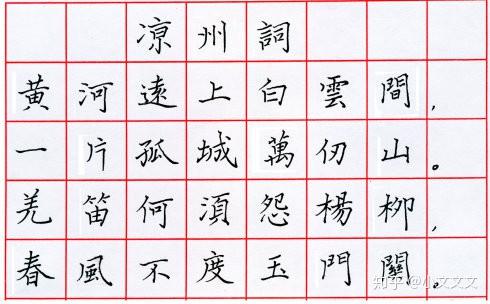 凉州詞
黃河遠上白雲間，
一片孤城萬仞山。
羌笛何湏怨楊柳，
春風不度玉門關。
知乎 @小文文文